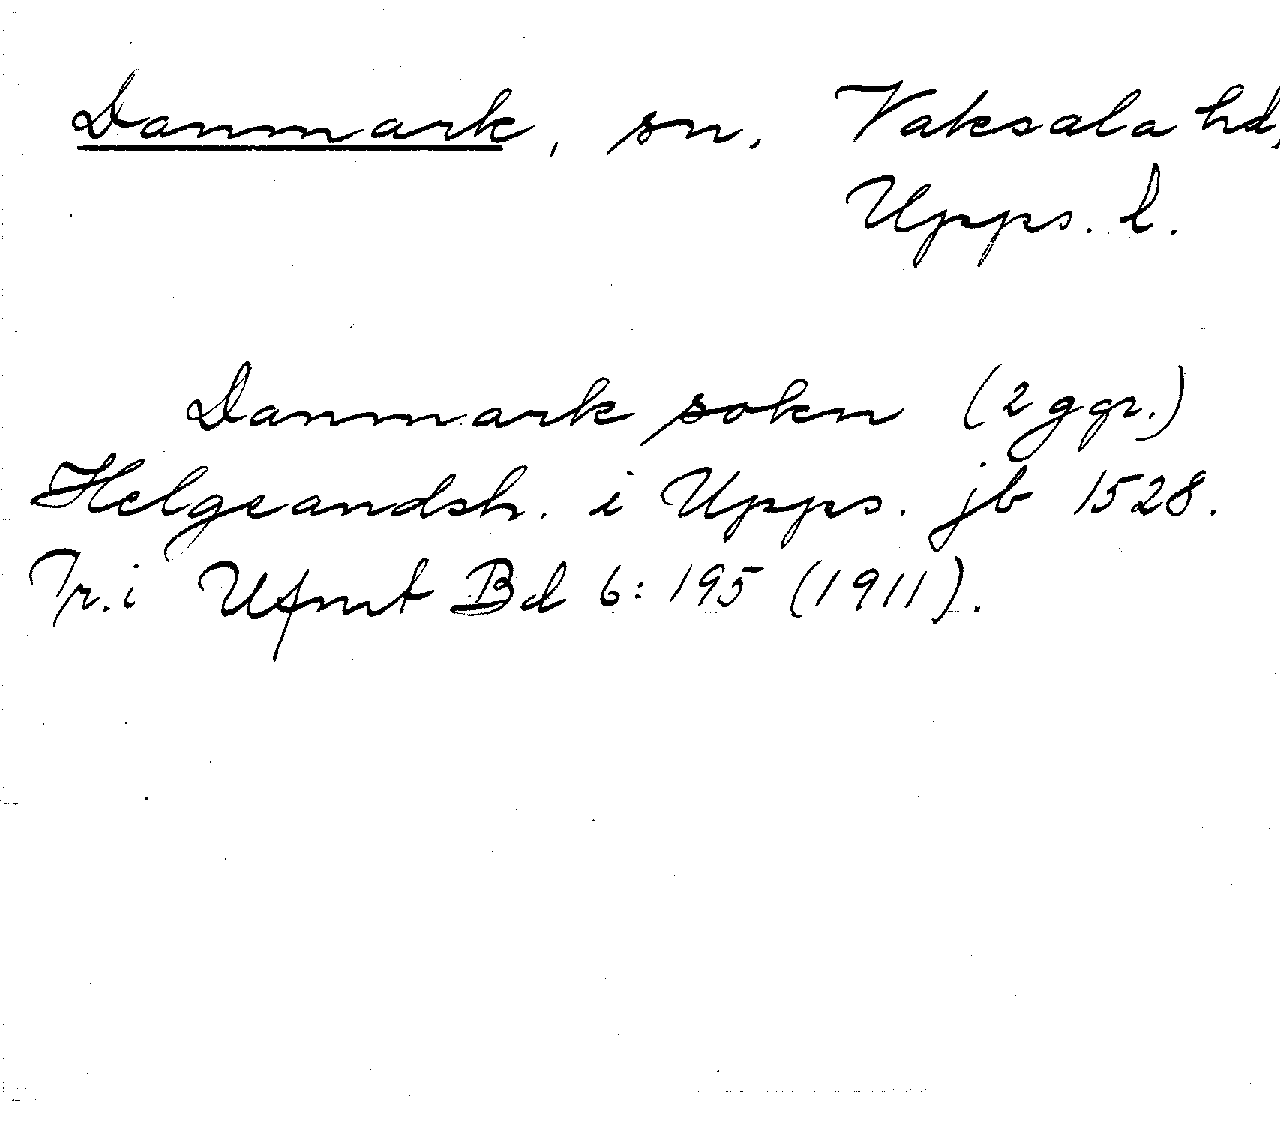 Danmark, sn. Vaksala hd,
Upps. l.
Danmark sokn (2 ggr.)
Helgeandsh. i Upps. jb 1528.
Tr. i Ufmt Bd 6: 195 (1911).